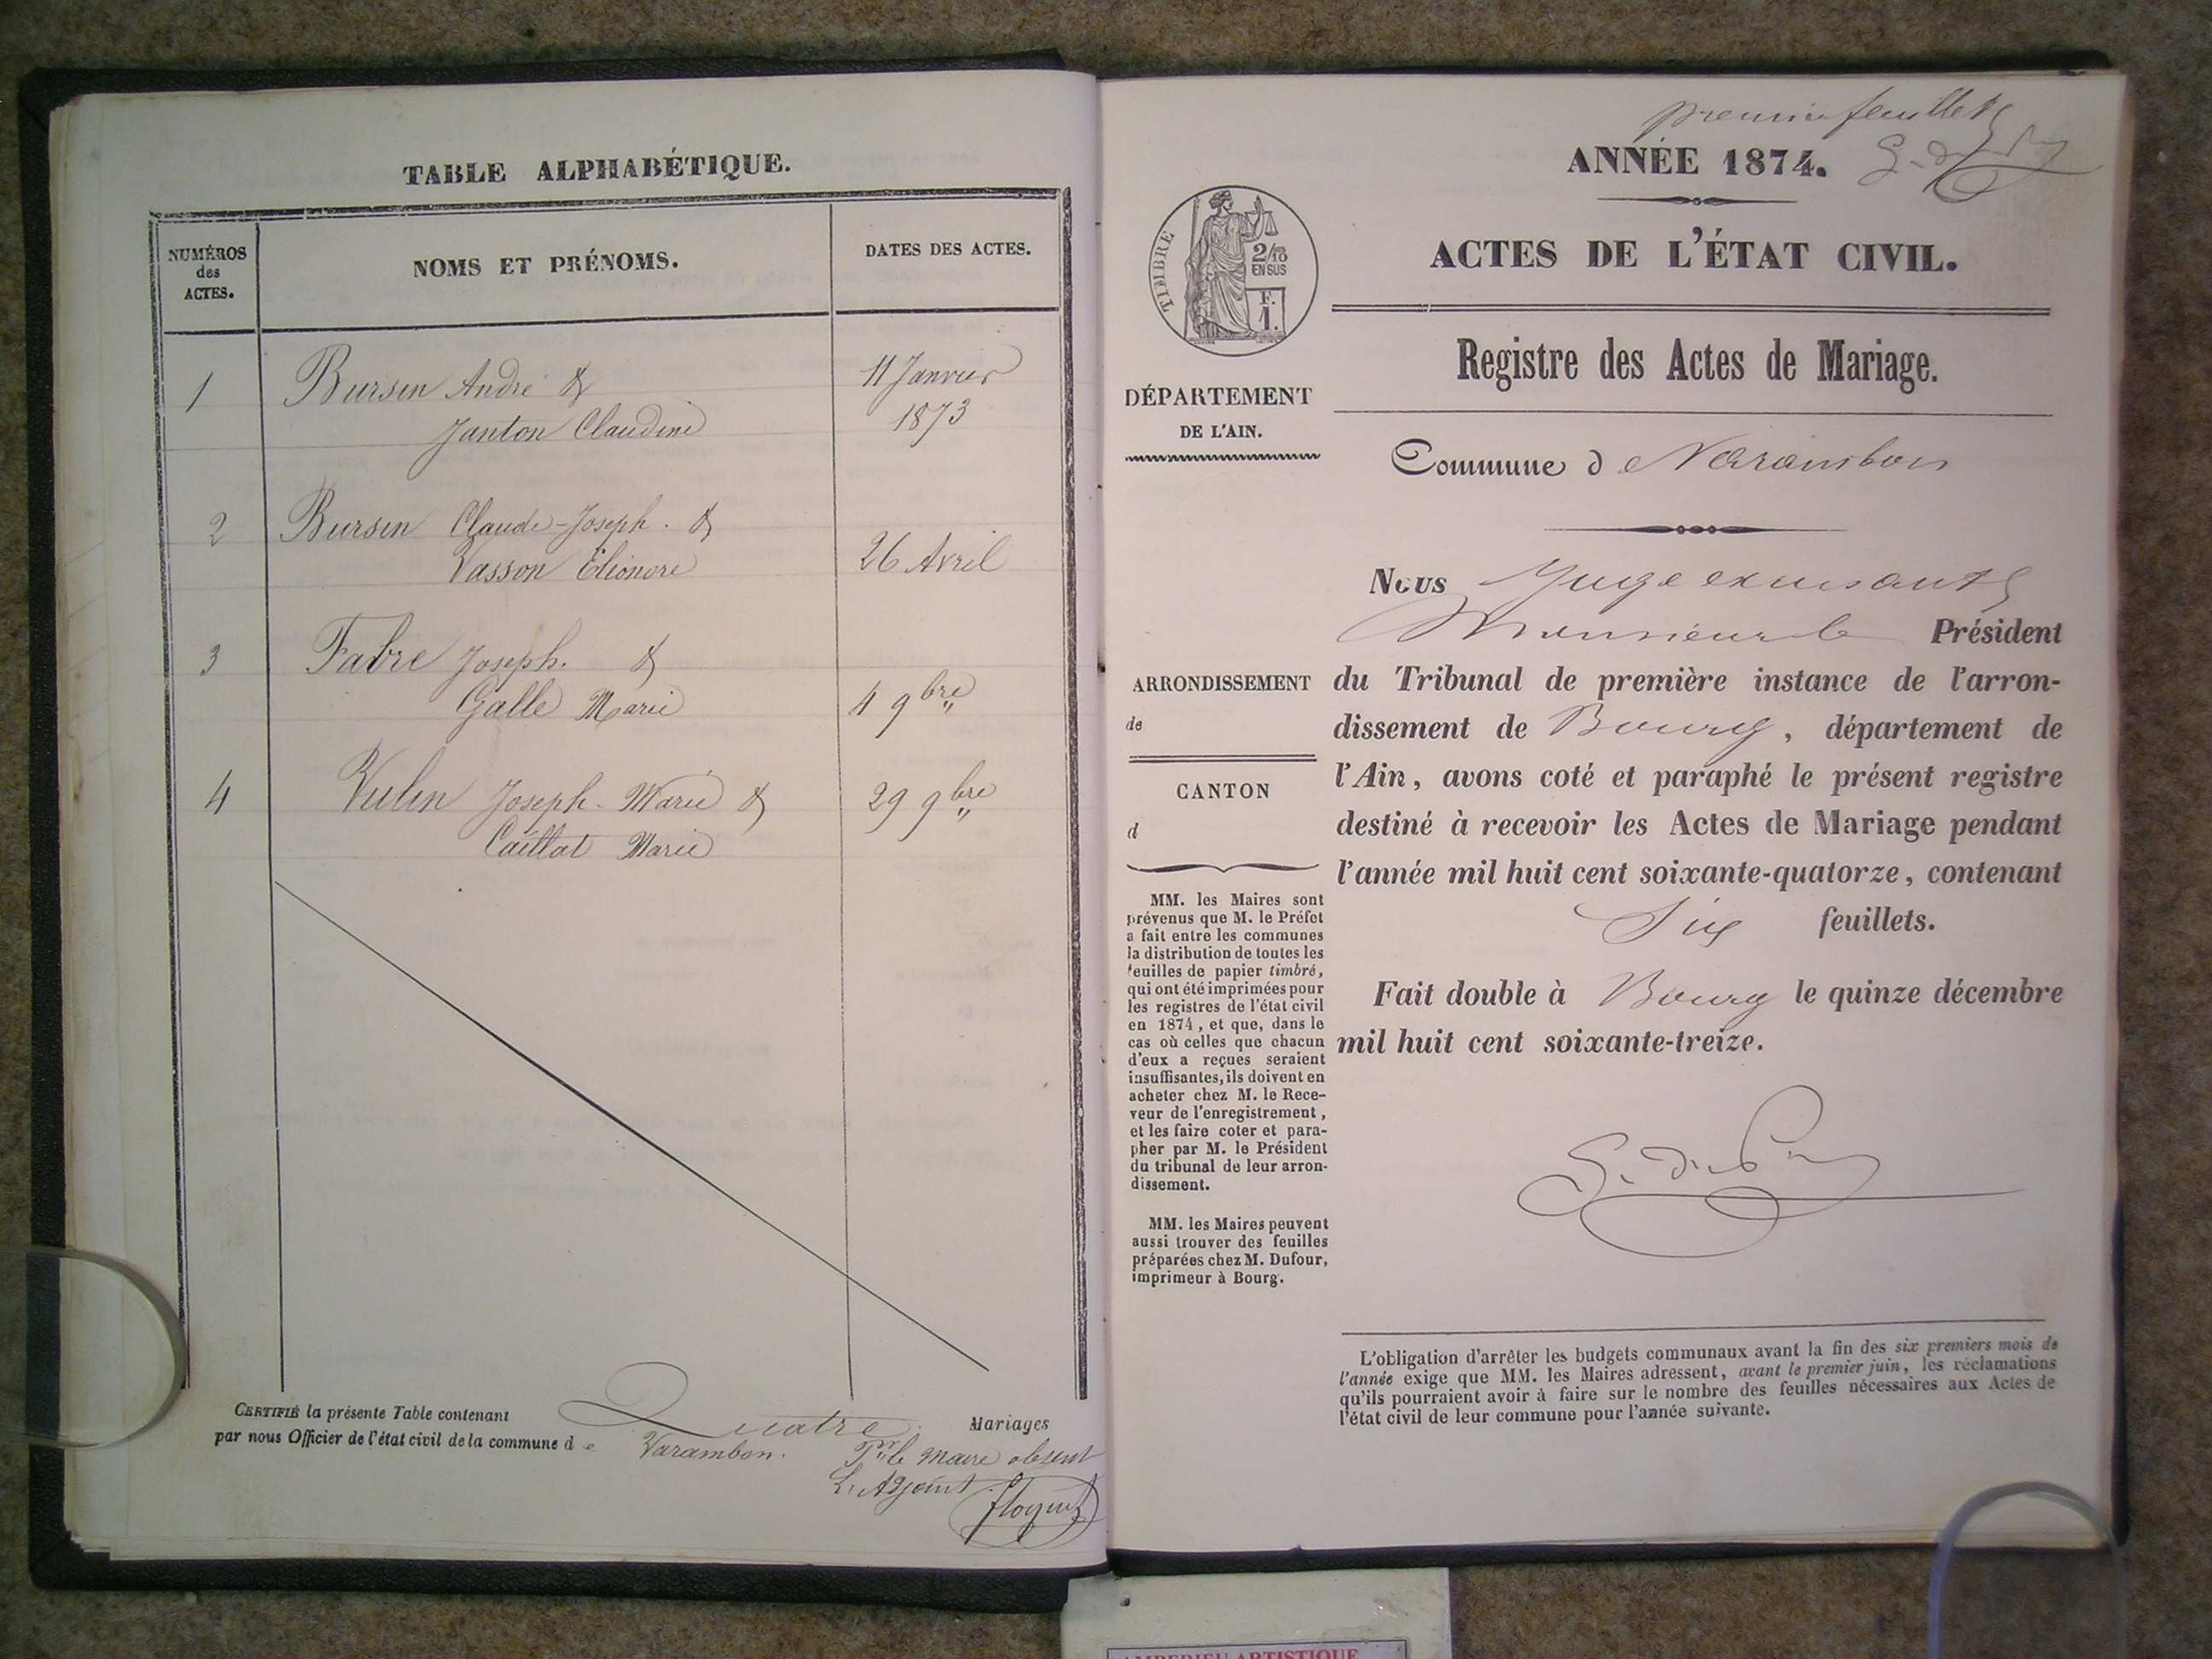 TABLE ALPHABÉTIQUE.
NUMÉROS des ACTES.
NOMS ET PRÉNOMS.
DATES DES ACTES.
1 Bursin André & 11 Janvier
Janton Claudine 1873
2 Bursin Claude-Joseph. &
Vasson Eléonore 26 Avril
3 Fabre Joseph. &
Galle Marie 4 9bre
4 Vulin Joseph-Marie & 29 9bre
Caillat Marie
CERTIFIÉ la présente Table contenant Quatre Mariages
par nous Officier de l'état civil de la commune de Varambon.
Pr le Maire absent
L'Adjoint
premier feuillet
ANNÉE 1874.
TIMBRE
2/10
EN SUS
F.
1.
ACTES DE L'ÉTAT CIVIL.
Registre des Actes de Mariage.
DÉPARTEMENT
DE L'AIN.
Commune de Varambon
Nous Juge
Monsieur le Président
du Tribunal de première instance de l'arron-
dissement de Bourg, département de
l'Ain, avons coté et paraphé le présent registre
destiné à recevoir les Actes de Mariage pendant
l'année mil huit cent soixante-quatorze, contenant
Six feuillets.
Fait double à Bourg le quinze décembre
mil huit cent soixante-treize.
ARRONDISSEMENT
de
CANTON
d
MM. les Maires sont
prévenus que M. le Préfet
a fait entre les communes
la distribution de toutes les
feuilles de papier timbré,
qui ont été imprimées pour
les registres de l'état civil
en 1874, et que, dans le
cas où celles que chacun
d'eux a reçues seraient
insuffisantes, ils doivent en
acheter chez M. le Rece-
veur de l'enregistrement,
et les faire coter et para-
pher par M. le Président
du tribunal de leur arron-
dissement.
MM. les Maires peuvent
aussi trouver des feuilles
préparées chez M. Dufour,
imprimeur à Bourg.
L'obligation d'arrêter les budgets communaux avant la fin des six premiers mois de
l'année exige que MM. les Maires adressent, avant le premier juin, les réclamations
qu'ils pourraient avoir à faire sur le nombre des feuilles nécessaires aux Actes de
l'état civil de leur commune pour l'année suivante.
AMPERIEU ARTISTIQUE